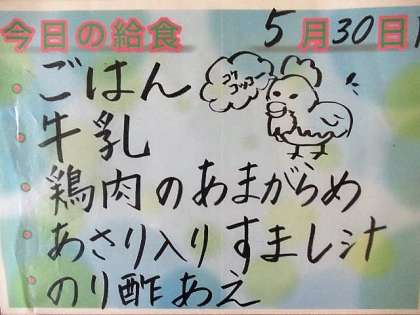 今日の給食 5月30日
ごはん
コケコッコー
牛乳
鶏肉のあまがらめ
あさり入りすまし汁
のり酢あえ